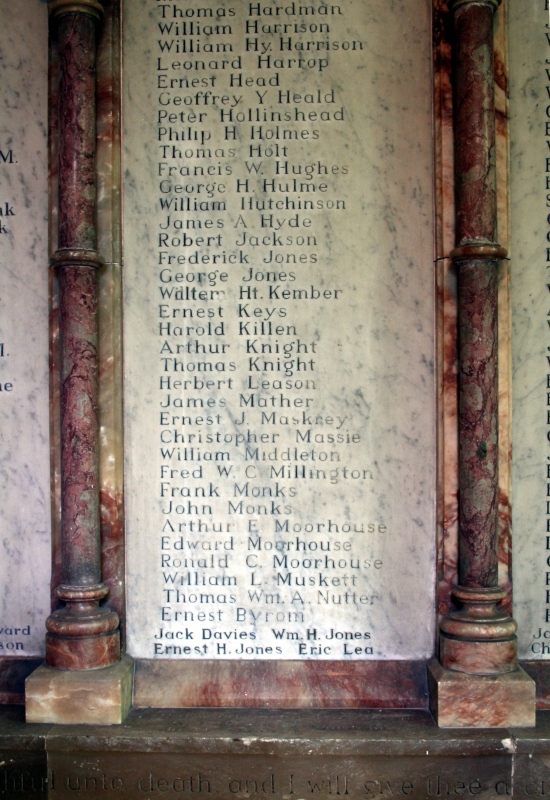 Thomas Hardman
William Harrison
William Hy. Harrison
Leonard Harrop
Ernest Head
Geoffrey Y Heald
Peter Hollinshead
Philip H. Holmes
Thomas Holt
Francis W. Hughes
George H. Hulme
William Hutchinson
James A. Hyde
Robert Jackson
Frederick Jones
George Jones
Walter Ht. Kember
Ernest Keys
Harold Killen
Arthur Knight
Thomas Knight
Herbert Leason
James Mather
Ernest J. Maskrey
Christopher Massie
William Middleton
Fred W. C. Millington
Frank Monks
John Monks
Arthur E. Moorhouse
Edward Moorhouse
Ronald C. Moorhouse
William L. Muskett
Thomas Wm. A. Nutter
Ernest Byrom
Jack Davies Wm. H. Jones
Ernest H. Jones Eric Lea
unto death, and I will give thee a